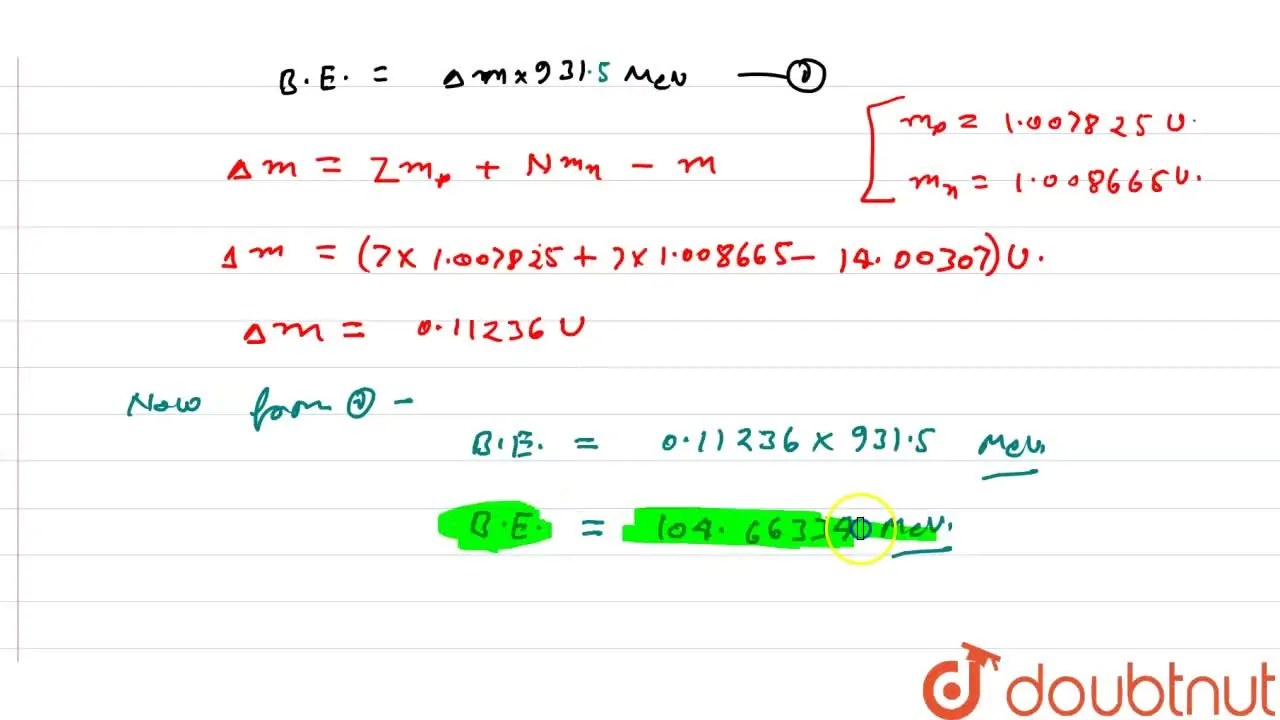 B.E. = Δm×931.5 MeV — ①
Δm = Zmp + Nmn - m
mp = 1.007825 U.
mn = 1.008665 U.
Δm = (7×1.007825+7×1.008665- 14.00307)U.
Δm = 0.11236 U
Now from ① -
B.E. = 0.11236 × 931.5 MeV.
B.E. = 104.663340 MeV.
doubtnut